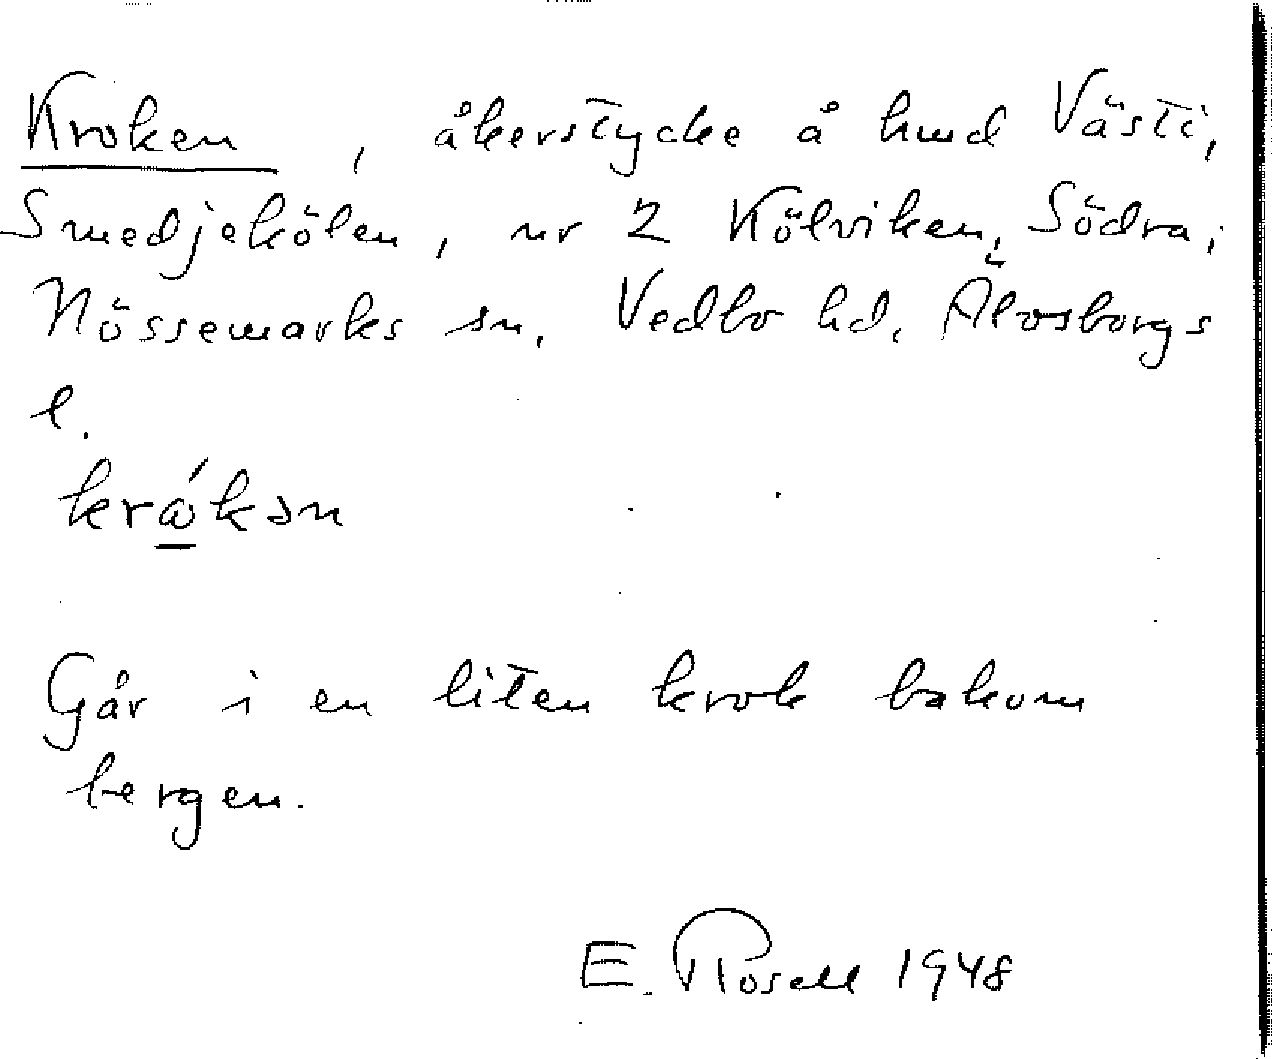 Kroken, åkerstycke å hmd Västi,
Smedjekölen, nr 2 Kölviken, Södra,
Nössemarks sn, Vedbo hd, Älvsborgs
l.
krǻ̱kən
Går i en liten krok bakom
bergen.
E. Rosell 1948